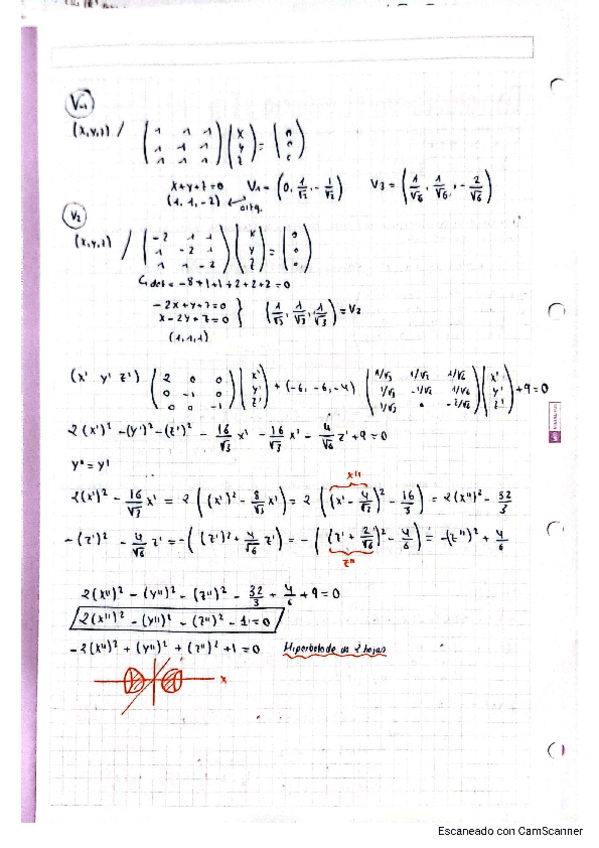 V₋₁
(x,y,z) / (1 1 1; 1 1 1; 1 1 1) (x; y; z) = (0; 0; 0)
x+y+z=0 V1=(0, 1/√2, -1/√2) V3=(1/√6, 1/√6, -2/√6)
(1,1,-2) ortg.
V₂
(x,y,z) / (-2 1 1; 1 -2 1; 1 1 -2) (x; y; z) = (0; 0; 0)
det = -8+1+1+2+2+2=0
-2x+y+z=0
x-2y+z=0 } (1/√3, 1/√3, 1/√3)=V2
(1,1,1)
(x' y' z') (2 0 0; 0 -1 0; 0 0 -1) (x'; y'; z') + (-6, -6, -4) (1/√3 1/√2 1/√6; 1/√3 -1/√2 1/√6; 1/√3 0 -2/√6) (x'; y'; z') +9=0
2(x')² -(y')² -(z')² - 16/√3 x' - 16/√3 x' - 4/√6 z' +9=0
y''=y'
x''
2(x')² - 16/√3 x' = 2((x')² - 8/√3 x') = 2((x' - 4/√3)² - 16/3) = 2(x'')² - 32/3
-(z')² - 4/√6 z' = -((z')² + 4/√6 z') = -((z' + 2/√6)² - 4/6) = -(z'')² + 4/6
z''
2(x'')² - (y'')² - (z'')² - 32/3 + 4/6 + 9 = 0
2(x'')² - (y'')² - (z'')² - 1 = 0
-2(x'')² + (y'')² + (z'')² + 1 = 0 Hiperboloide de 2 hojas
x
Escaneado con CamScanner